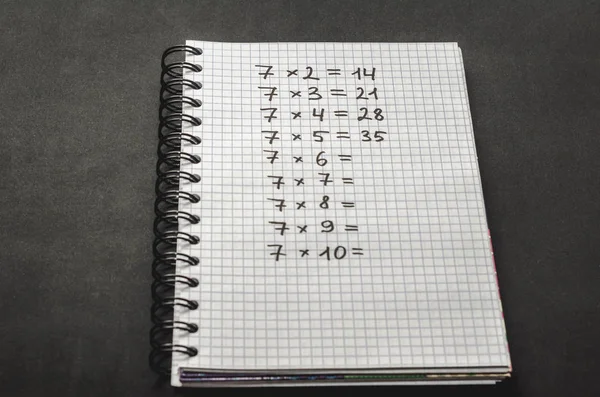 7 × 2 = 14
7 × 3 = 21
7 × 4 = 28
7 × 5 = 35
7 × 6 =
7 × 7 =
7 × 8 =
7 × 9 =
7 × 10 =